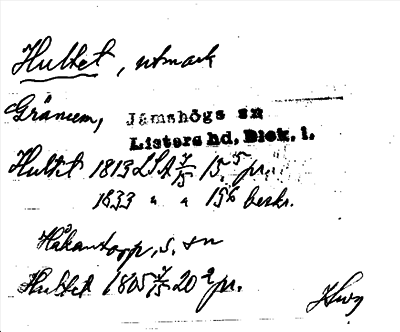 Hultet, utmark
Gränum, Jämshögs sn
Listers hd. Blek. l.
Hultet 1813 LSA 7/15 15⁵ pr.
1833 " " 15⁶ beskr.
Håkantorp, s. sn
Hultet 1805 7/15 20² pr.